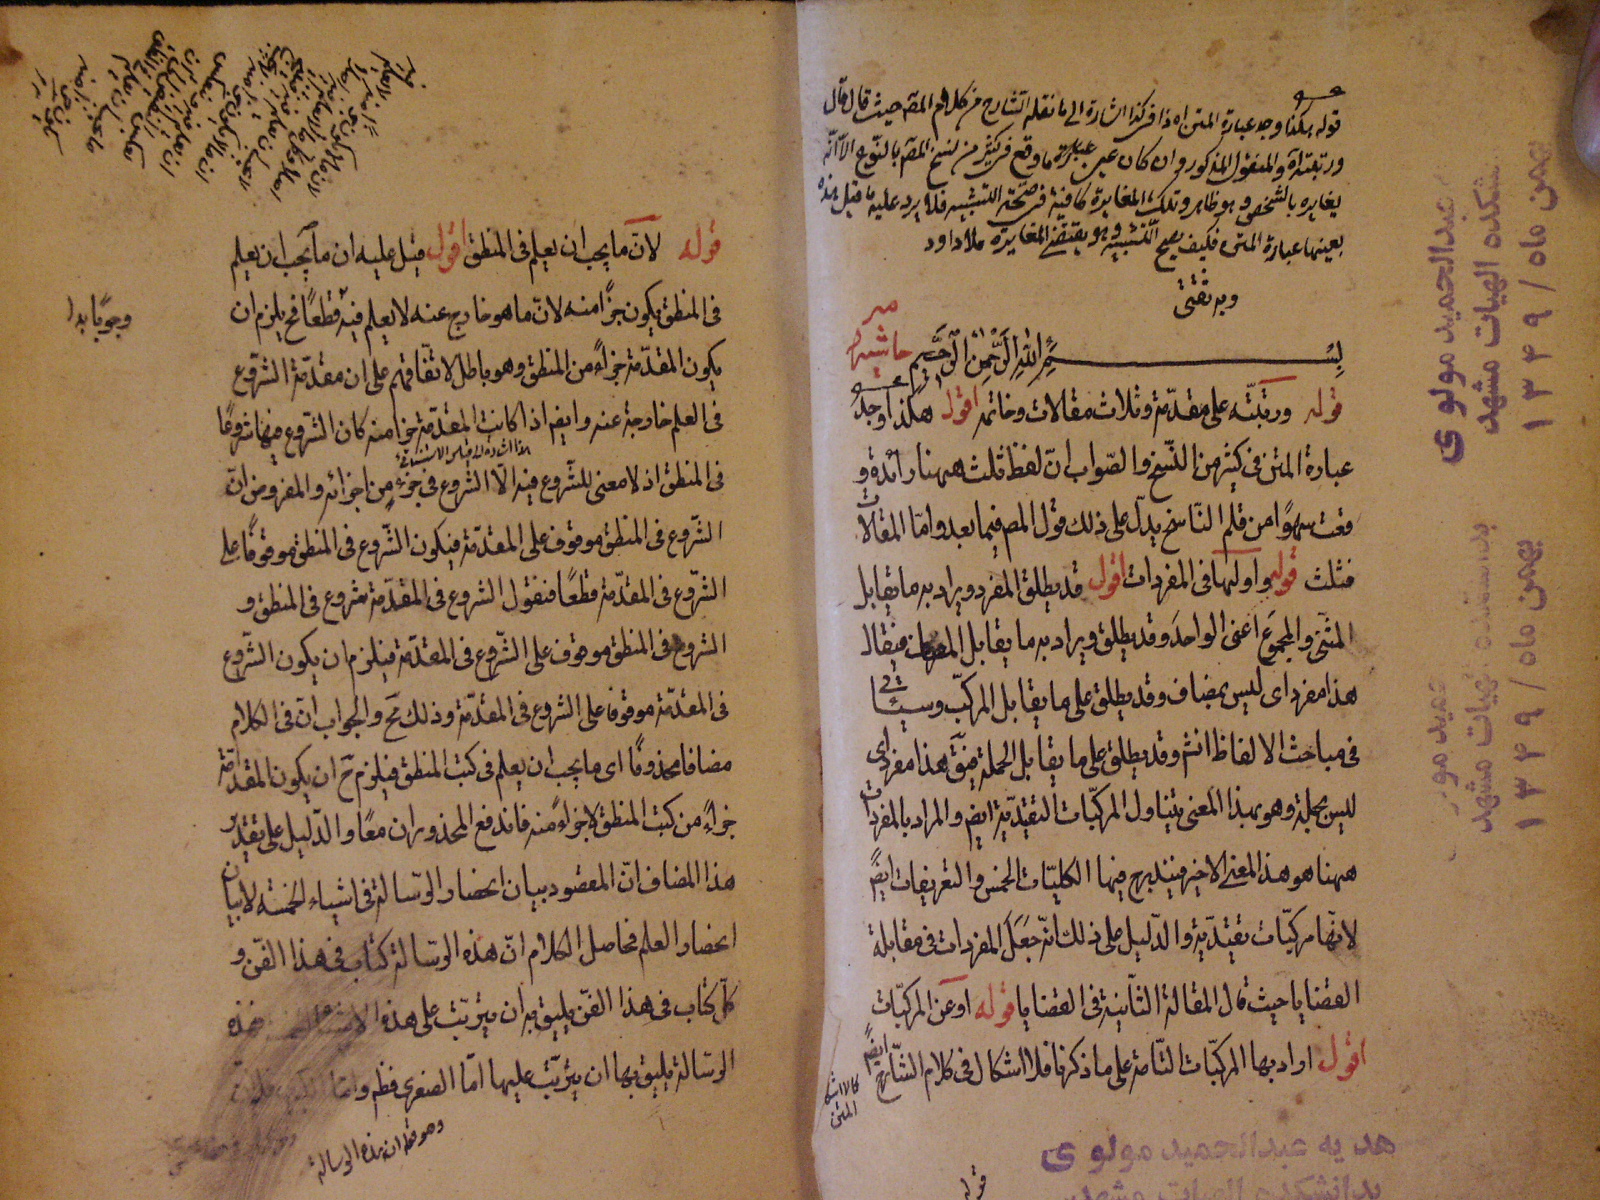 قوله هكذا وجد عبارة المتن اه ذا فى كذا اشارة الى ما نقله الشارح من كلام المصه حيث قال قال
ورتبته اه والمنقول المذكور وان كان عين عبارة ما وقع فى كثير من نسخ المصه بالنوع الا انه
يغايره بالشخص وهو ظاهر وتلك المغايرة كافية فى صحة التشبيه فلا يرد عليه ما قيل هذه
بعينها عبارة المتن فكيف يصح التشبيه وهو يقتضى المغايرة ملا داود
وبه ثقتى
مير
حاشيه
بسم الله الرحمن الرحيم
قوله ورتبته على مقدمة وثلاث مقالات وخاتمه اقول هكذا وجد
عبارة المتن فى كثير من النسخ والصواب ان لفظ ثلث ههنا زائدة و
وقعت سهوا من قلم الناسخ يدل على ذلك قول المصه فيما بعد واما المقالات
فثلث قوله واوليها فى المفردات اقول قد يطلق المفرد ويراد به ما يقابل
المثنى والمجموع اعنى الواحد وقد يطلق ويراد به ما يقابل المضاف فيقال
هذا مفرد اى ليس بمضاف وقد يطلق على ما يقابل المركب وسياتى
فى مباحث الالفاظ انشه وقد يطلق على ما يقابل الجملة فيق هذا مفرد اى
ليس بجملة وهو بهذا المعنى يتناول المركبات التقييدية ايضه والمراد بالمفردات
ههنا هو هذا المعنى الاخير فيندرج فيها الكليات الخمس والتعريفات ايضا
لانها مركبات تقييدية والدليل على ذلك انه جعل المفردات فى مقابلة
القضايا حيث قال المقالة الثانية فى القضايا قوله او عن المركبات
اقول اراد بها المركبات التامة على ما ذكرنا فلا اشكال فى كلام الشارح ايضا
كما لا اشكال
المتن
هديه عبدالحميد مولوى
بدانشكده الهيات مشهد
قوله
عبدالحميد مولوى
بدانشكده الهيات مشهد
بهمن ماه / ١٣٣٩
عبدالحميد مولوى
بدانشكده الهيات مشهد
بهمن ماه / ١٣٣٩
قوله لان ما يجب ان يعلم فى المنطق اقول قيل عليه ان ما يجب ان يعلم
فى المنطق يكون جزا منه لان ما هو خارج عنه لا يعلم فيه قطعا فح يلزم ان
يكون المقدمة جزاء من المنطق وهو باطل لاتفاقهم على ان مقدمة الشروع
فى العلم خارجة عنه وايضه اذا كانت المقدمة جزا منه كان الشروع فيها شروعا
فى المنطق اذ لا معنى للشروع فيه الا الشروع فى جزء من اجزائه والمفروض ان
الشروع فى المنطق موقوف على المقدمة فيكون الشروع فى المنطق موقوفا على
الشروع فى المقدمة قطعا فنقول الشروع فى المقدمة شروع فى المنطق و
الشروع فى المنطق موقوف على الشروع فى المقدمة فيلزم ان يكون الشروع
فى المقدمة موقوفا على الشروع فى المقدمة وذلك مح والجواب ان فى الكلام
مضافا محذوفا اى ما يجب ان يعلم فى كتب المنطق فيلزم ح ان يكون المقدمة
جزاء من كتب المنطق لا جزاء منه فاندفع المحذوران معا والدليل على تقدير
هذا المضاف ان المقصود بيان انحصار الرسالة فى اشياء الخمسة لا بيان
انحصار العلم فحاصل الكلام ان هذه الرسالة كتاب فى هذا الفن و
كل كتاب فى هذا الفن يليق به ان يترتب على هذه الاشياء الخمسة فهذه
الرسالة يليق بها ان يترتب عليها اما الصغرى فظه واما الكبرى فلان
وهو قوله ان هذه الرسالة